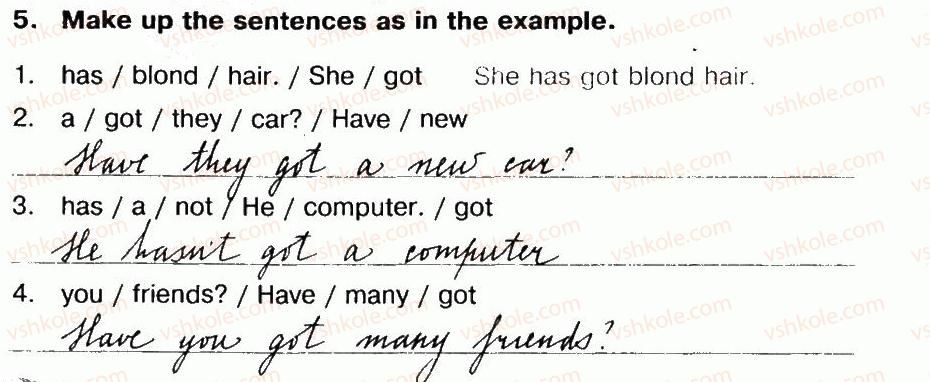 5. Make up the sentences as in the example.
1. has / blond / hair. / She / got She has got blond hair.
2. a / got / they / car? / Have / new
Have they got a new car?
3. has / a / not / He / computer. / got
He hasn't got a computer
4. you / friends? / Have / many / got
Have you got many friends?